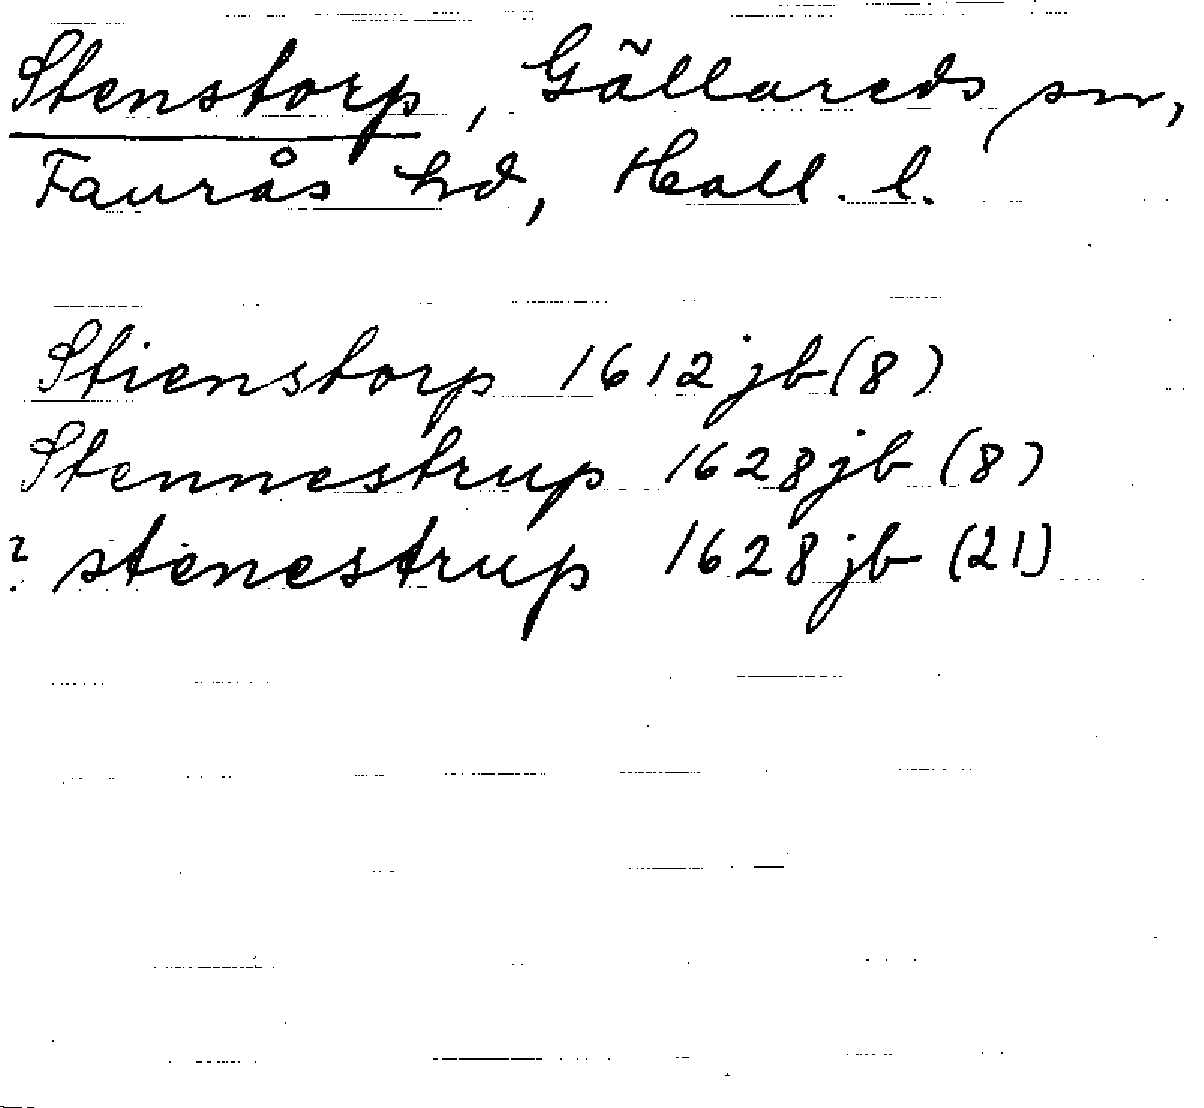 Stenstorp, Gällareds sn,
Faurås hd, Hall. l.
Stienstorp 1612 jb (8)
Stennestrup 1628 jb (8)
? stenestrup 1628 jb (21)